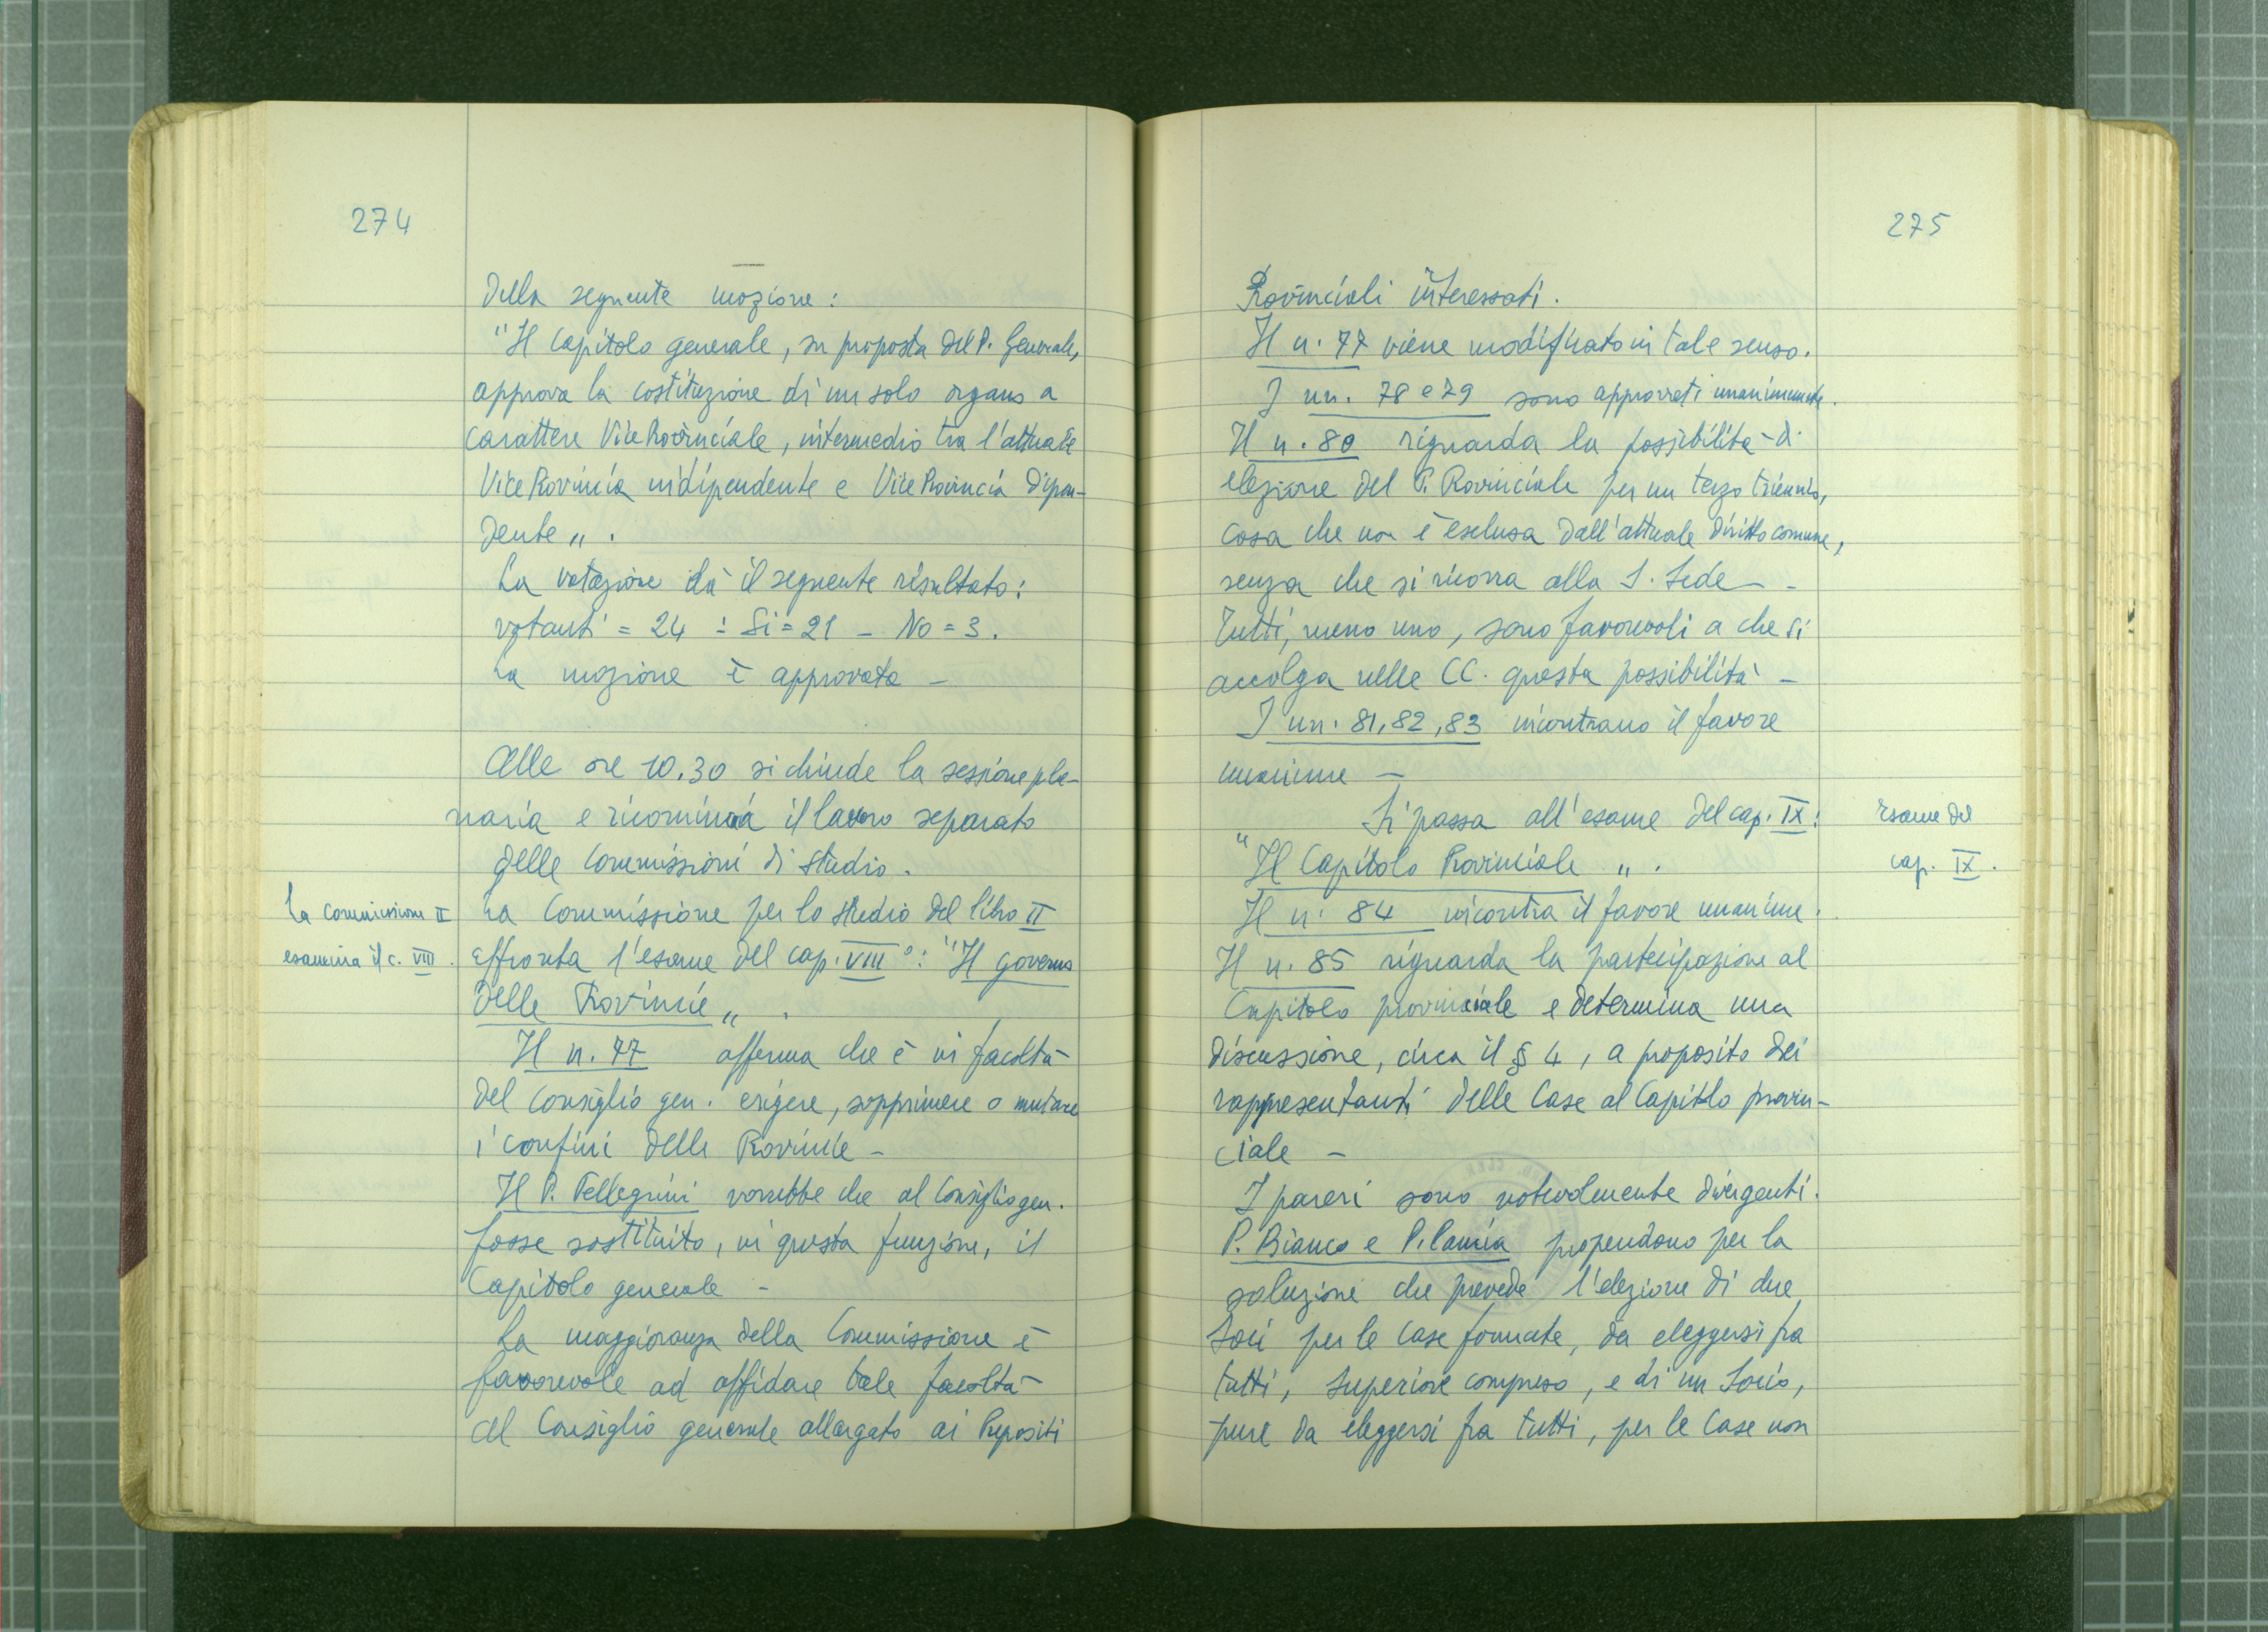 274
della seguente mozione:
"Il Capitolo generale, su proposta del P. Generale,
approva la costituzione di un solo organo a
carattere ViceProvinciale, intermedio tra l'attuale
ViceProvincia indipendente e ViceProvincia dipen-
dente„.
La votazione dà il seguente risultato:
votanti = 24 : Si = 21 - No = 3.
La mozione è approvata -
Alle ore 10.30 si chiude la sessione ple-
naria e ricomincia il lavoro separato
delle Commissioni di studio.
La Commissione II
esamina il c. VIII.
La Commissione per lo studio del libro II
affronta l'esame del cap. VIII°: "Il governo
delle Provincie„.
Il n. 77 afferma che è in facoltà
del Consiglio gen. erigere, sopprimere o mutare
i confini delle Provincie -
Il P. Pellegrini vorrebbe che al Consiglio gen.
fosse sostituito, in questa funzione, il
Capitolo generale -
La maggioranza della Commissione è
favorevole ad affidare tale facoltà
al Consiglio generale allargato ai Prepositi
275
Provinciali interessati.
Il n. 77 viene modificato in tale senso.
I nn. 78 e 79 sono approvati unanimemente.
Il n. 80 riguarda la possibilità di
elezione del P. Provinciale per un terzo triennio,
cosa che non è esclusa dall'attuale diritto comune,
senza che si ricorra alla S. Sede -
Tutti, meno uno, sono favorevoli a che si
accolga nelle CC. questa possibilità -
I nn. 81, 82, 83 incontrano il favore
unanime -
Si passa all'esame del cap. IX:
"Il Capitolo Provinciale„.
Esame del
cap. IX.
Il n. 84 incontra il favore unanime.
Il n. 85 riguarda la partecipazione al
Capitolo provinciale e determina una
discussione, circa il § 4, a proposito dei
rappresentanti delle Case al Capitolo provin-
ciale -
I pareri sono notevolmente divergenti.
P. Bianco e P. Lamia propendono per la
soluzione che prevede l'elezione di due
Soci per le Case formate, da eleggersi fra
tutti, Superiore compreso, e di un Socio,
pure da eleggersi fra tutti, per le Case non